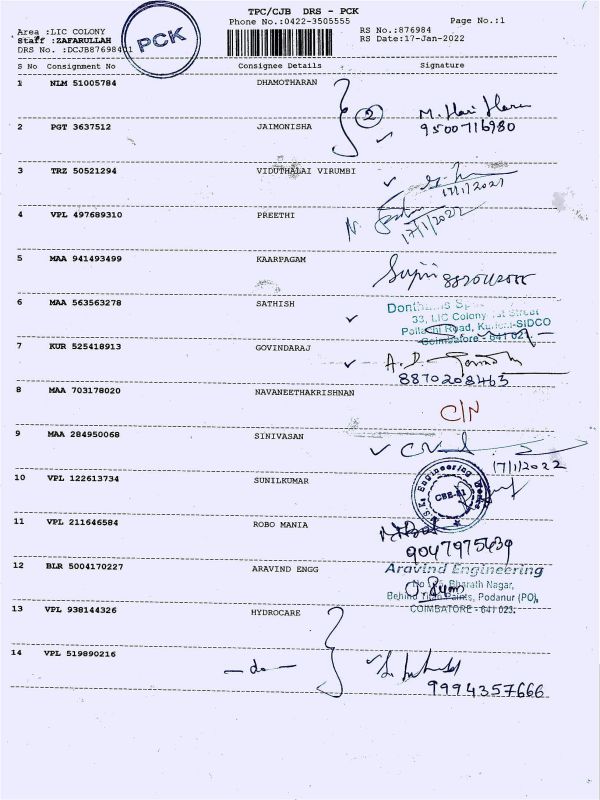 TPC/CJB DRS - PCK
Phone No.:0422-3505555 Page No.:1
Area :LIC COLONY RS No.:876984
Staff :ZAFARULLAH RS Date:17-Jan-2022
DRS No. :DCJB876984
PCK
S No Consignment No Consignee Details Signature
1 NLM 51005784 DHAMOTHARAN
2 M. Hari Haran
2 PGT 3637512 JAIMONISHA 9500716980
3 TRZ 50521294 VIDUTHALAI VIRUMBI
17/1/2022
4 VPL 497689310 PREETHI
17/1/2022
5 MAA 941493499 KAARPAGAM
6 MAA 563563278 SATHISH
33, LIC Colony 1st Street
Pollachi Road, Kurichi-SIDCO
Coimbatore - 641 021
7 KUR 525418913 GOVINDARAJ
8870208463
8 MAA 703178020 NAVANEETHAKRISHNAN
C/N
9 MAA 284950068 SINIVASAN
17/1/2022
10 VPL 122613734 SUNILKUMAR
Engineering Works
CBE-21
11 VPL 211646584 ROBO MANIA
9047975639
12 BLR 5004170227 ARAVIND ENGG
Aravind Engineering
Bharath Nagar,
Behind Titan Paints, Podanur (PO),
COIMBATORE - 641 023.
13 VPL 938144326 HYDROCARE
14 VPL 519890216
— do —
9994357666